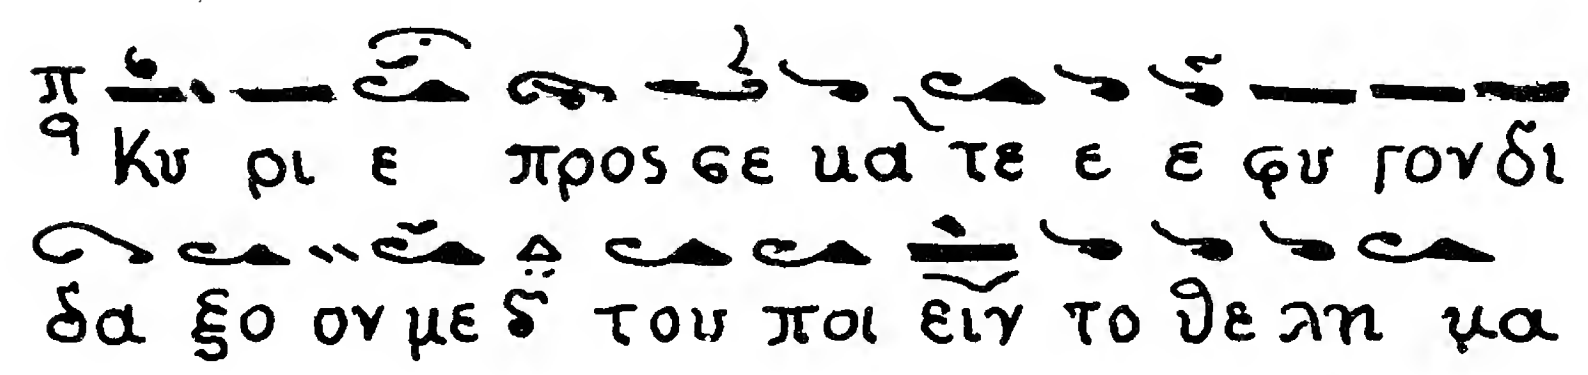 π Κυ ρι ε προς σε κα τε ε ε φυ γον δι
q
δα ξο ον με δ του ποι ειν το θε λη μα